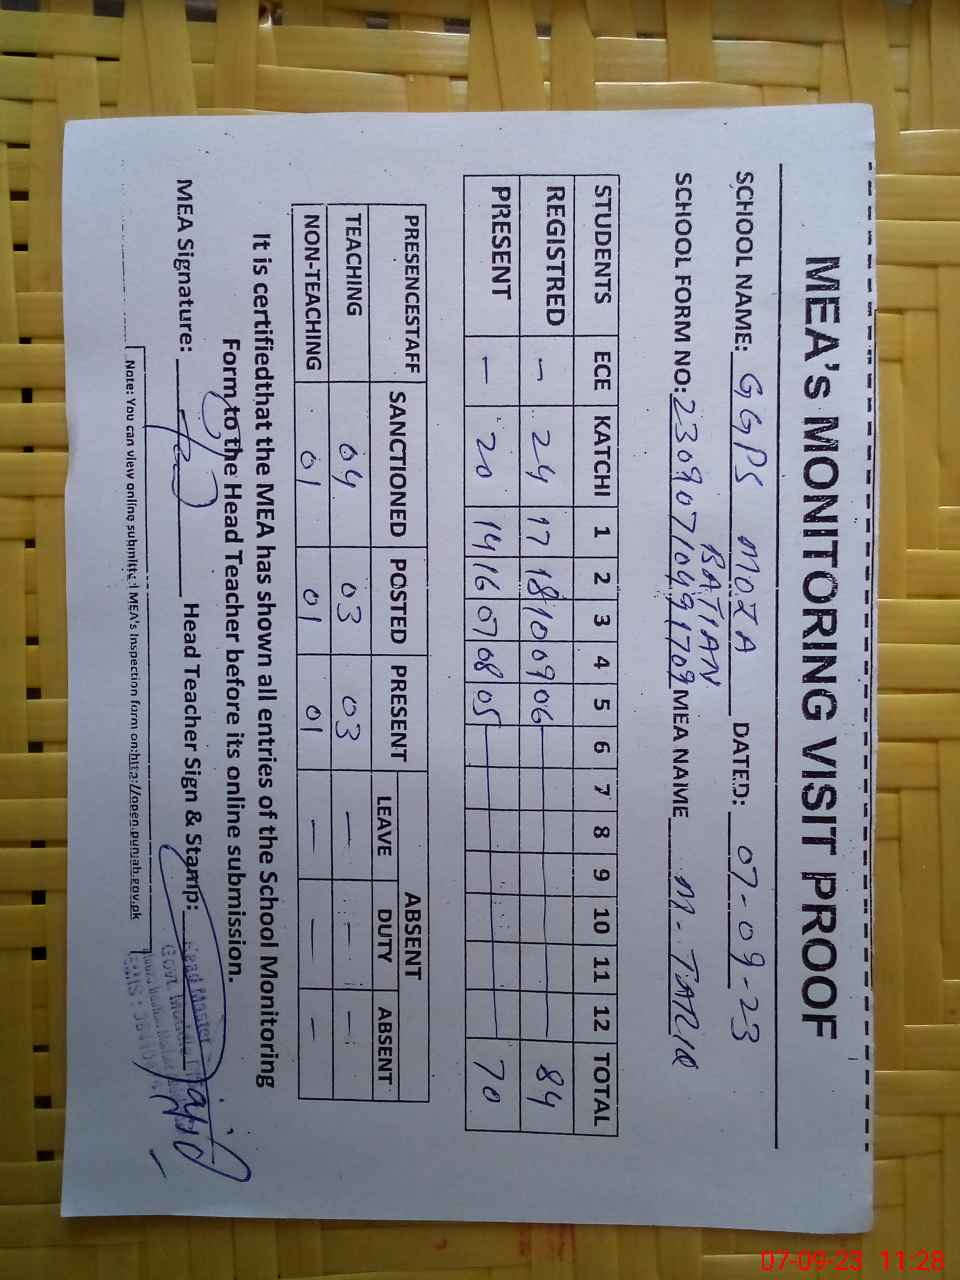 MEA's MONITORING VISIT PROOF
SCHOOL NAME: GGPS MOZA BATIAN DATED: 07-09-23
SCHOOL FORM NO: 23090710491709 MEA NAME M-TARIQ
STUDENTS ECE KATCHI 1 2 3 4 5 6 7 8 9 10 11 12 TOTAL
REGISTRED - 24 17 18 10 09 06 84
PRESENT - 20 14 16 07 08 05 70
PRESENCESTAFF SANCTIONED POSTED PRESENT ABSENT
LEAVE DUTY ABSENT
TEACHING 04 03 03 - - -
NON-TEACHING 01 01 01 - - -
It is certifiedthat the MEA has shown all entries of the School Monitoring
Form to the Head Teacher before its online submission.
MEA Signature: Head Teacher Sign & Stamp:
Head Master
Govt. Middle
EMIS:
Note: You can view online submitted MEA's Inspection form on:http://open.punjab.gov.pk
07-09-23 11:28